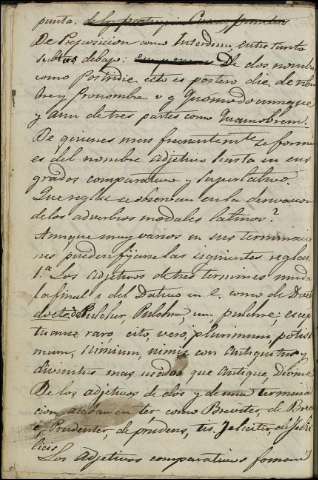 punto.
De Preposicion como Interdum, entre tanto
subtus debajo. De dos nombres
como Postridie esto es postero die, de
y Pronombre v g Quomodocumque
y aun de tres partes como Quamobrem.
De quienes mas frecuentemente se forman
es del nombre adjetivo hasta en sus
grados comparativo y superlativo.
Que reglas se observan en la derivacion
de los adverbios modales latinos?
Aunque muy varios en sus terminacio
nes pueden fijarse las siguientes reglas.
1.a Los adjetivos de tres terminaciones mudan
la final del Dativo en e. como de Docto
docte Pulcher, Pulchro, um, pulchre; excep
tuanse raro, cito, vero, plurimum potissi
mum, nimium, nimis con antiquitus y
divinitus mas usados que antique, divine
De los adjetivos de dos y de una termina
cion acaban en ter como Breviter, de Brevis
e, Prudenter, de prudens, tis. Feliciter, de Felix
licis.
Los Adjetivos comparativos forman